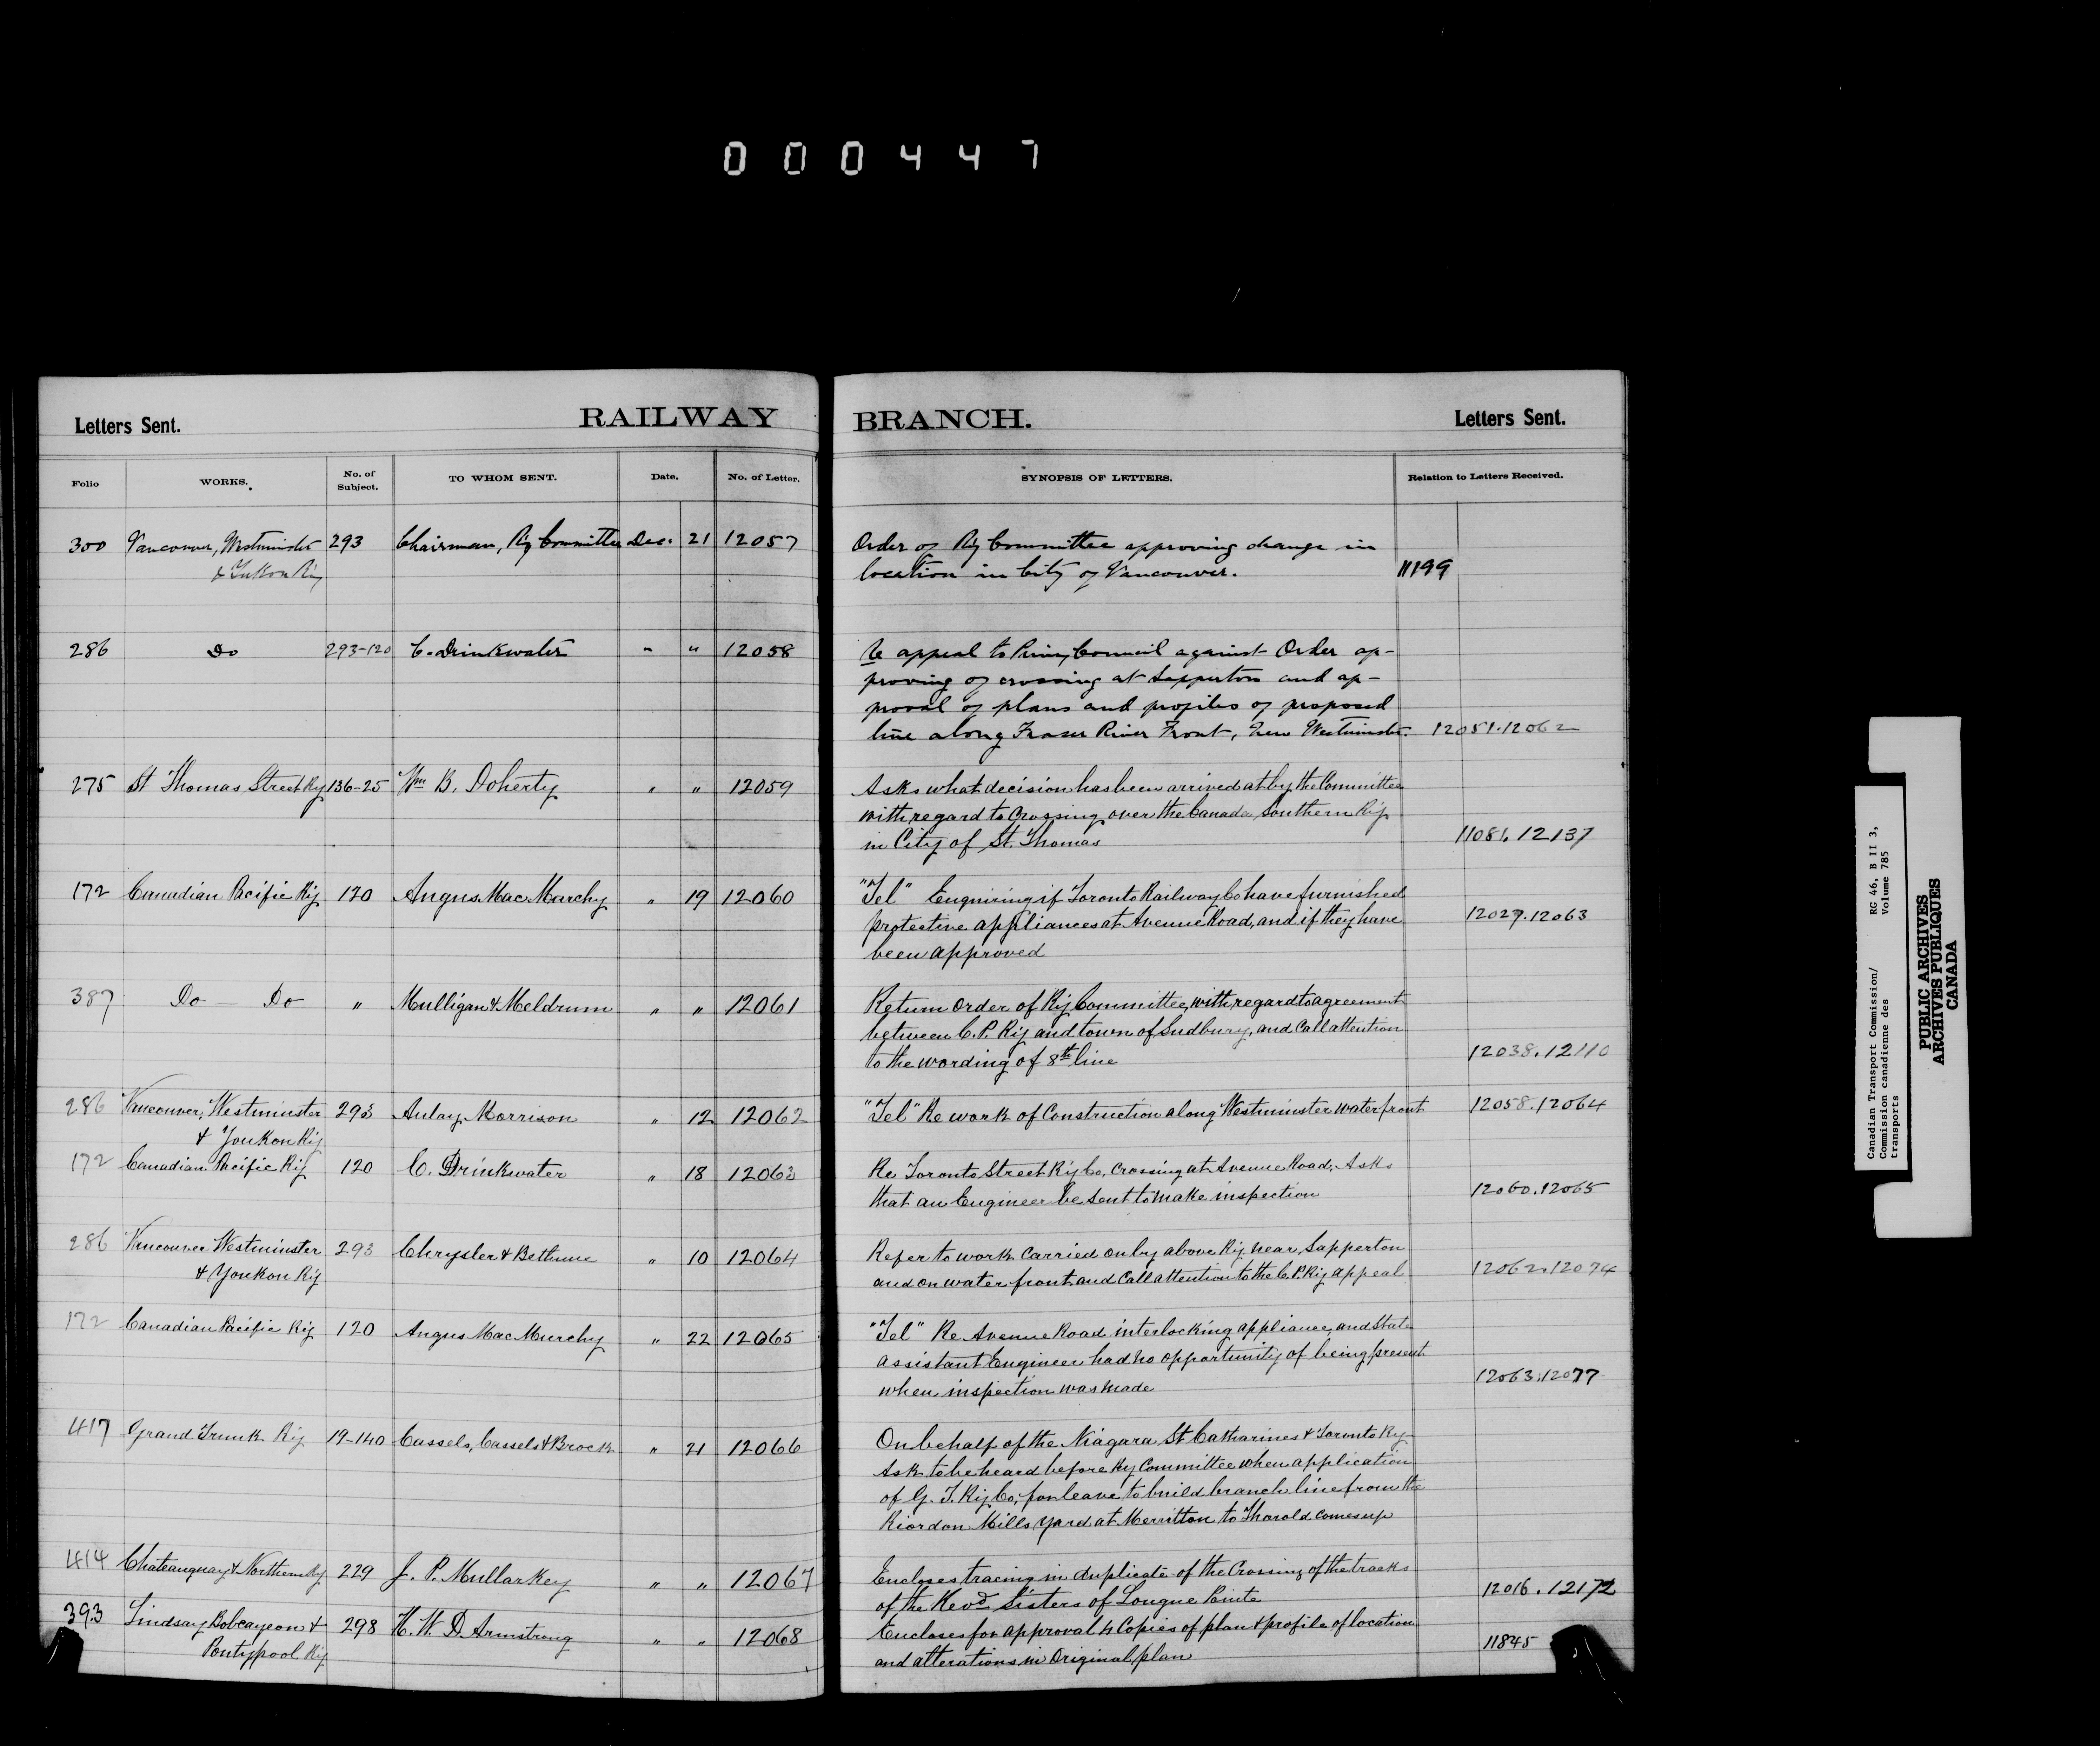 000447
Letters Sent. RAILWAY BRANCH. Letters Sent.
Folio WORKS. No. of Subject. TO WHOM SENT. Date. No. of Letter. SYNOPSIS OF LETTERS. Relation to Letters Received.
300 Vancouver, Westminster 293 Chairman, Ry Committee Dec. 21 12057 Order of Ry Committee approving change in
& Yukon Ry location in City of Vancouver. 11199
286 Do 293-120 C. Drinkwater " " 12058 Re appeal to Privy Council against Order ap-
proving of crossing at Sapperton and ap-
proval of plans and profiles of proposed
line along Fraser River Front, New Westminster. 12051.12062
275 St Thomas Street Ry 136-25 Wm B. Doherty " " 12059 Asks what decision has been arrived at by the Committee
with regard to Crossing over the Canada Southern Ry
in City of St. Thomas 11081.12137
172 Canadian Pacific Ry 120 Angus MacMurchy " 19 12060 "Tel" Enquiring if Toronto Railway Co have furnished
protective appliances at Avenue Road, and if they have 12027.12063
been approved
387 Do — Do " Mulligan & Meldrum " " 12061 Return Order of Ry Committee, with regard to agreement
between C.P. Ry and town of Sudbury, and Call attention
to the wording of 8th line 12038.12110
286 Vancouver, Westminster 293 Aulay Morrison " 12 12062 "Tel" Re work of Construction along Westminster water front 12058.12064
& Youkon Ry
172 Canadian Pacific Ry 120 C. Drinkwater " 18 12063 Re Toronto Street Ry Co, Crossing at Avenue Road, Asks
that an Engineer be sent to make inspection 12060.12065
286 Vancouver Westminster 293 Chrysler & Bethune " 10 12064 Refer to work Carried on by above Ry near Sapperton
& Youkon Ry and on water front and Call attention to the C.P. Ry appeal 12062.12074
172 Canadian Pacific Ry 120 Angus MacMurchy " 22 12065 "Tel" Re Avenue Road interlocking appliance, and State
Assistant Engineer had no opportunity of being present
when inspection was made 12063.12077
417 Grand Trunk Ry 19-140 Cassels, Cassels & Brock " 21 12066 On behalf of the Niagara St Catharines & Toronto Ry
Ask to be heard before Ry Committee when application
of G. T. Ry Co, for leave to build branch line from the
Riordon Mills yard at Merritton to Thorold comes up
414 Chateauguay & Northern Ry 229 J. P. Mullarkey " " 12067 Encloses tracing in duplicate of the Crossing of the tracks
of the Revd Sisters of Longue Pointe 12016.12172
393 Lindsay Bobcaygeon & 298 H. W. D. Armstrong " " 12068 Encloses for approval 4 Copies of plan & profile of location
Pontypool Ry and alterations in Original plan 11845
Canadian Transport Commission/ RG 46, B II 3,
Commission canadienne des Volume 785
transports
PUBLIC ARCHIVES
ARCHIVES PUBLIQUES
CANADA